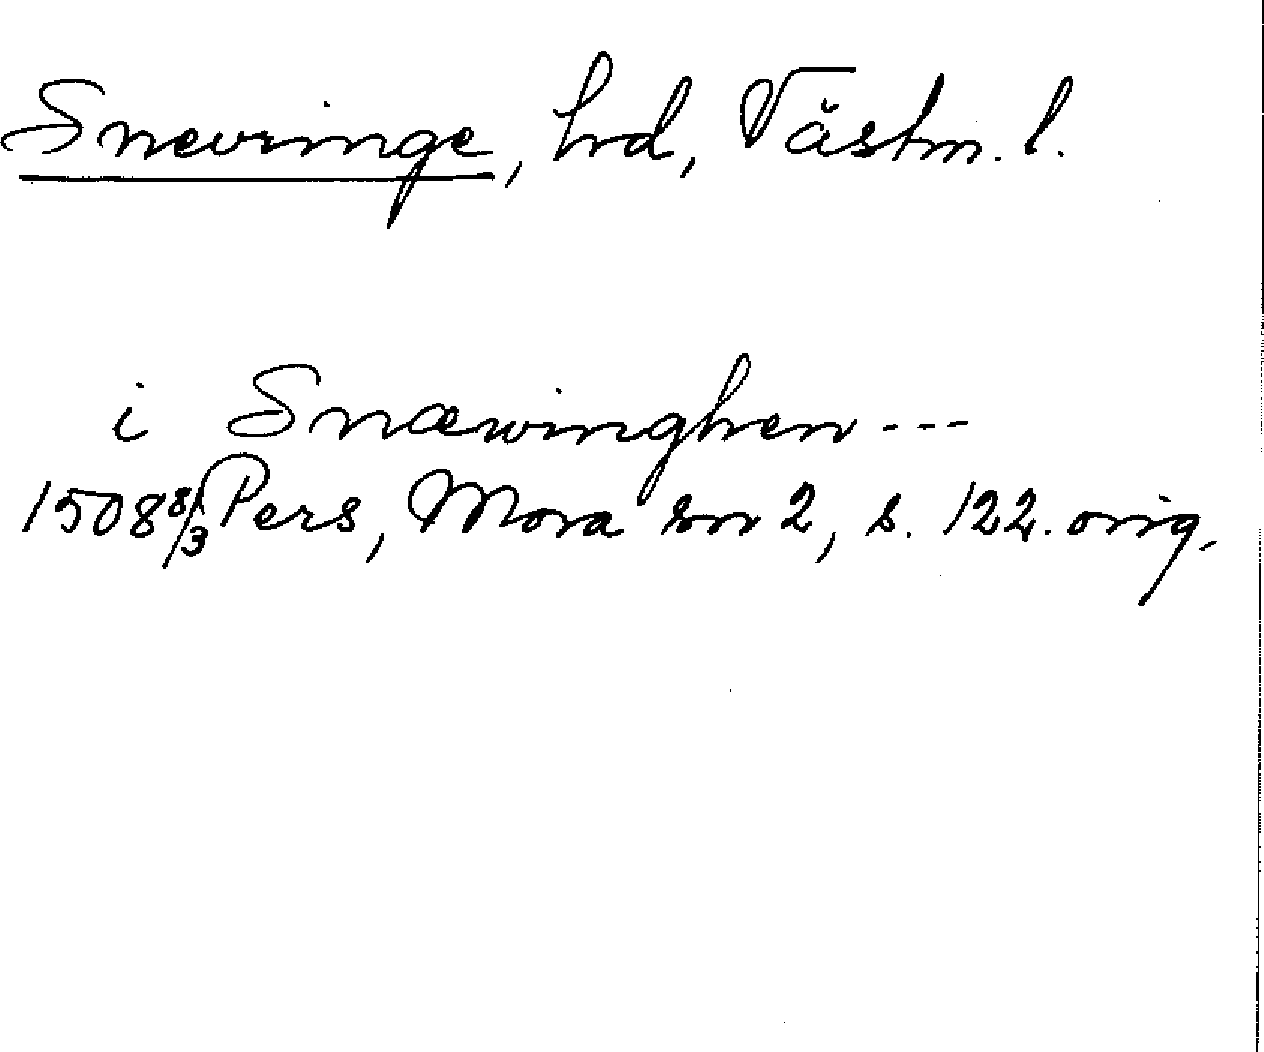 Snevringe, hd, Västm. l.
i Snæwinghen ---
1508 8/3 Pers, Mora sn 2, s. 122. orig.